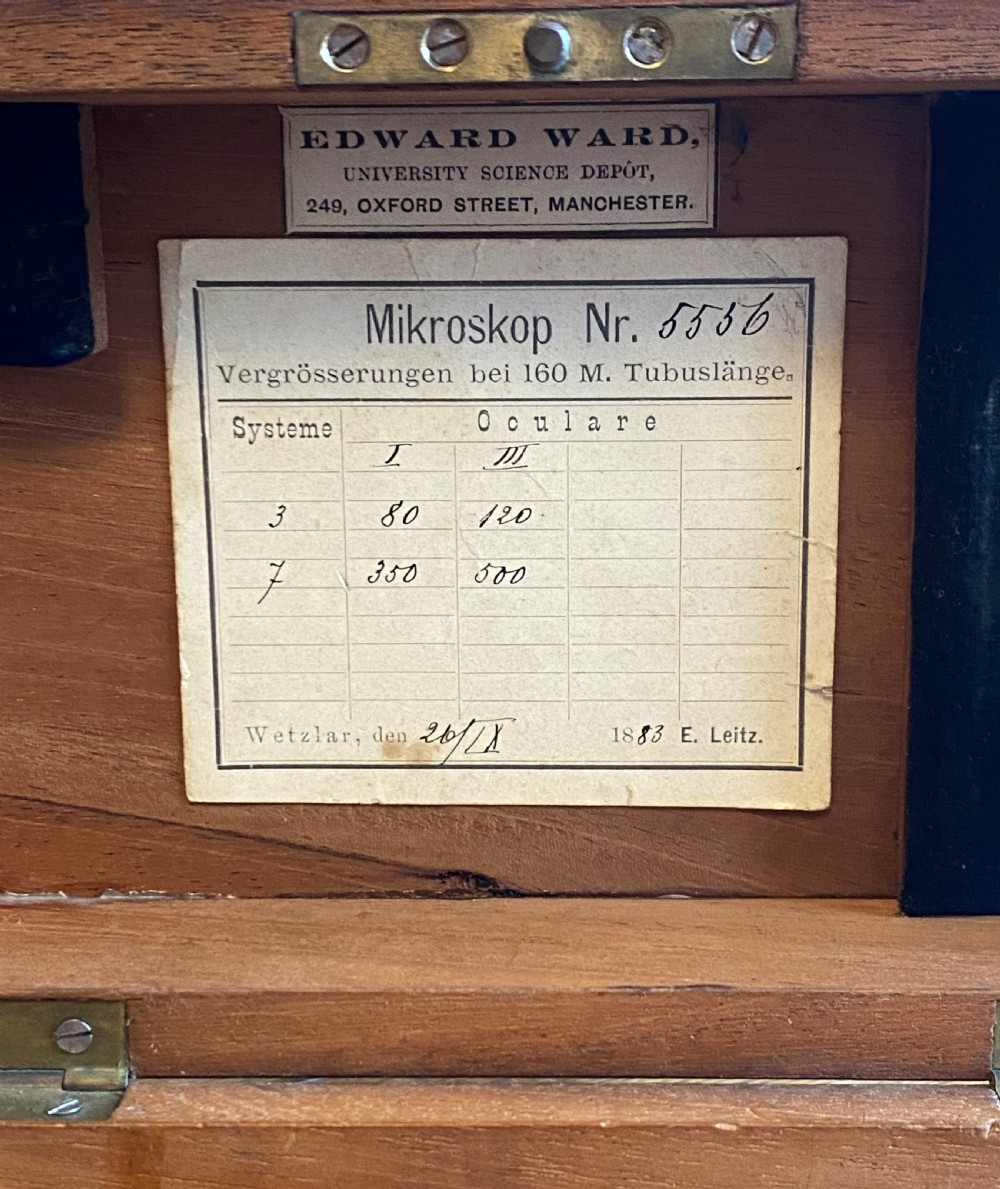 EDWARD WARD,
UNIVERSITY SCIENCE DEPÔT,
249, OXFORD STREET, MANCHESTER.
Mikroskop Nr. 5556
Vergrösserungen bei 160 M. Tubuslänge.
Systeme Oculare
I III
3 80 120
7 350 500
Wetzlar, den 26/IX 1883 E. Leitz.